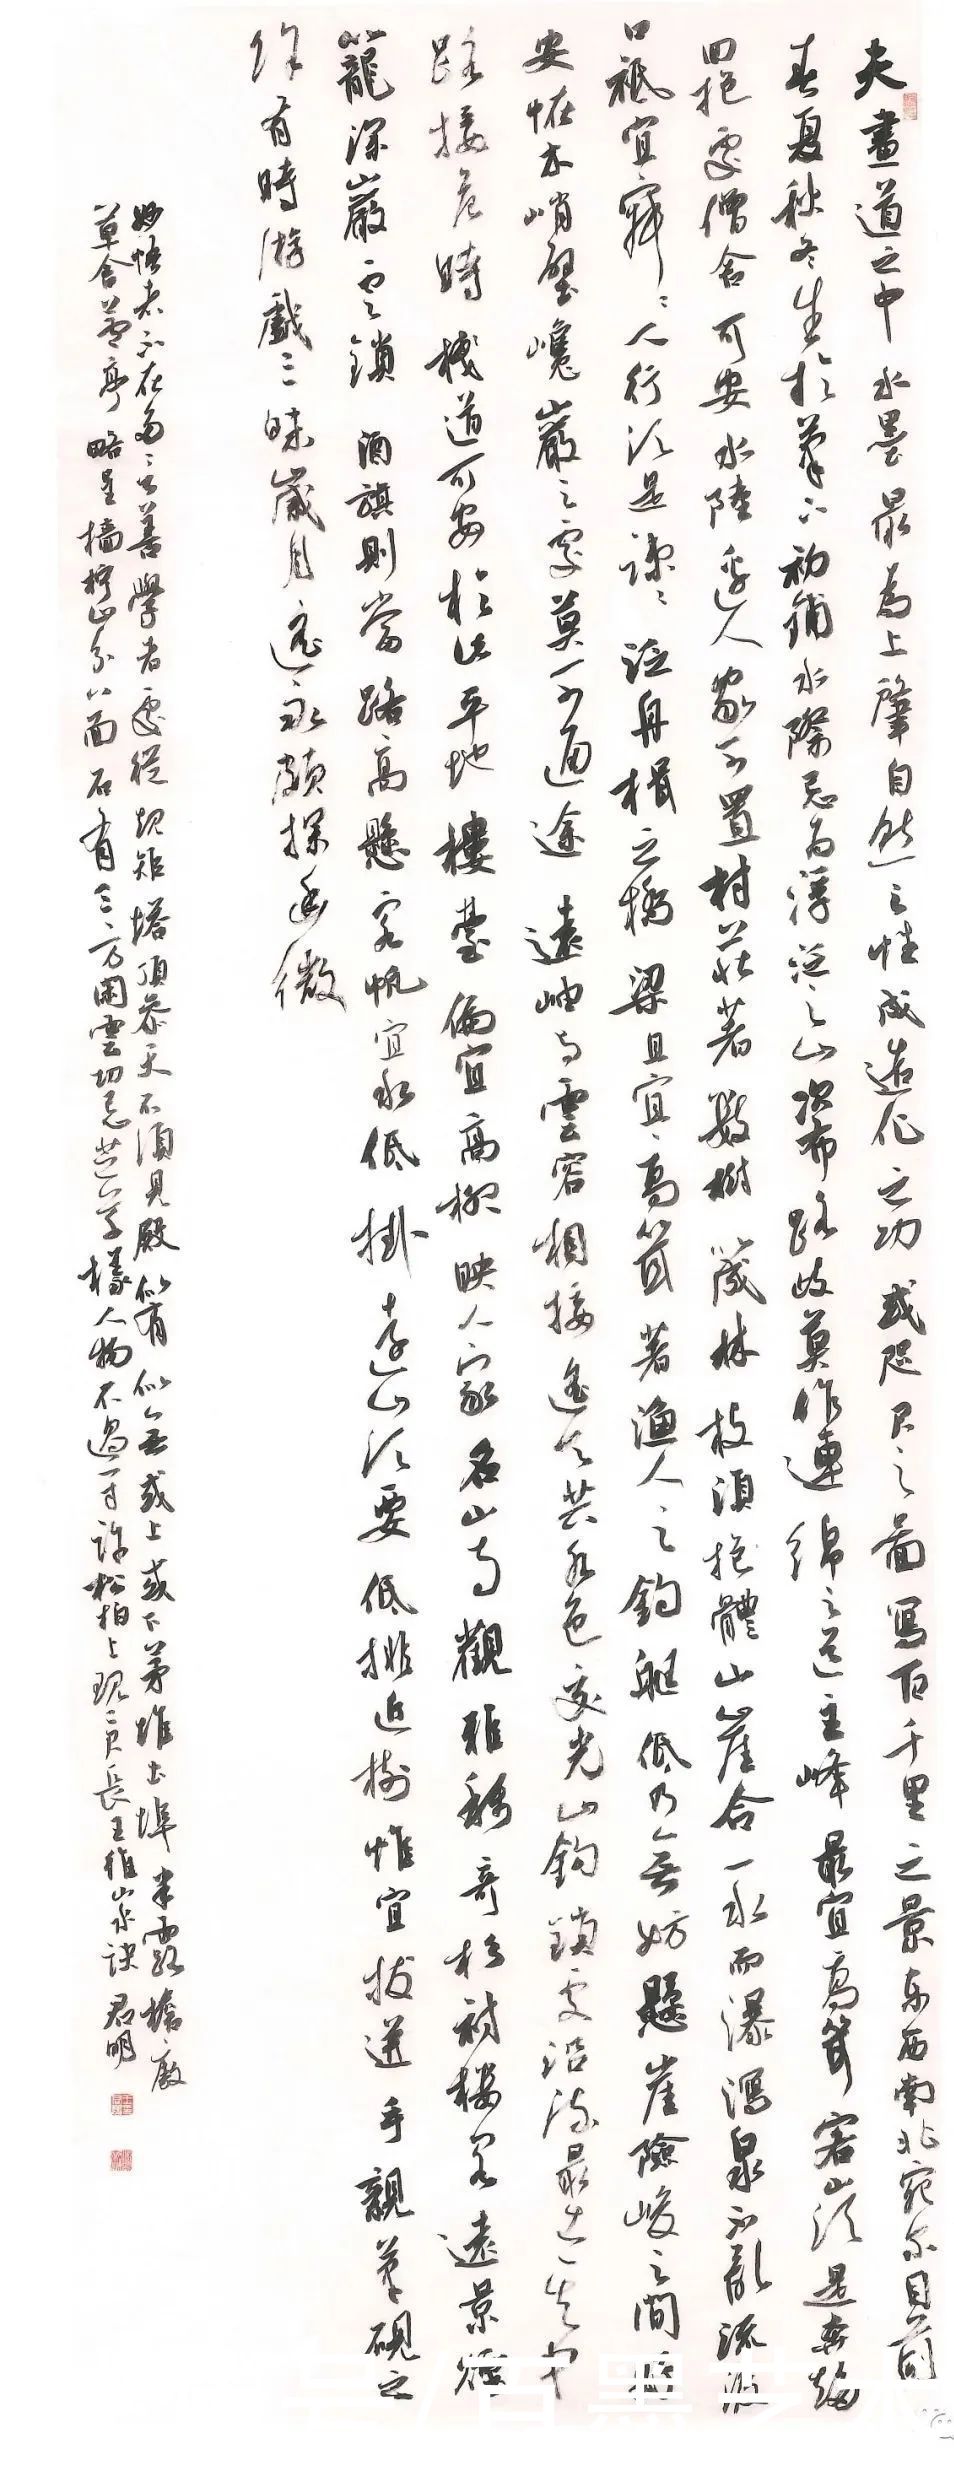 夫畫道之中水墨最為上肇自然之性成造化之功或咫尺之圖寫百千里之景东西南北宛尔目前
春夏秋冬生於筆下初鋪水際忌為浮泛之山次布路歧莫作連綿之道主峰最宜高聳客山須是奔趨
回抱處僧舍可安水陸邊人家可置村莊著數樹以成林枝須抱體山崖合一水而瀑瀉泉不亂流渡
口祗宜寂〻人行須是疎〻泛舟楫之橋梁且宜高聳著漁人之釣艇低乃無妨懸崖險峻之間好
安怪木峭壁巉巖之處莫可通途遠岫與雲容相接遙天共水色交光山鉤鎖處沿流最出其中
路接危時棧道可安於此平地樓臺偏宜高柳映人家名山寺觀雅稱奇杉衬樓閣遠景煙
籠深巖雲鎖酒旗則當路高懸客帆宜水低掛遠山須要低排近樹惟宜拔迸手親筆硯之
餘有時游戲三昧歲月遙永頗探幽微
妙悟者不在多言善學者還從規矩塔頂參天不須見殿似有似無或上或下茅堆土埠半露檐廒
草舍蘆亭略呈檣檸山分八面石有三方閑雲切忌芝草樣人物不過一寸許松柏上現二尺長王維山水訣 君明
号/百墨艺术